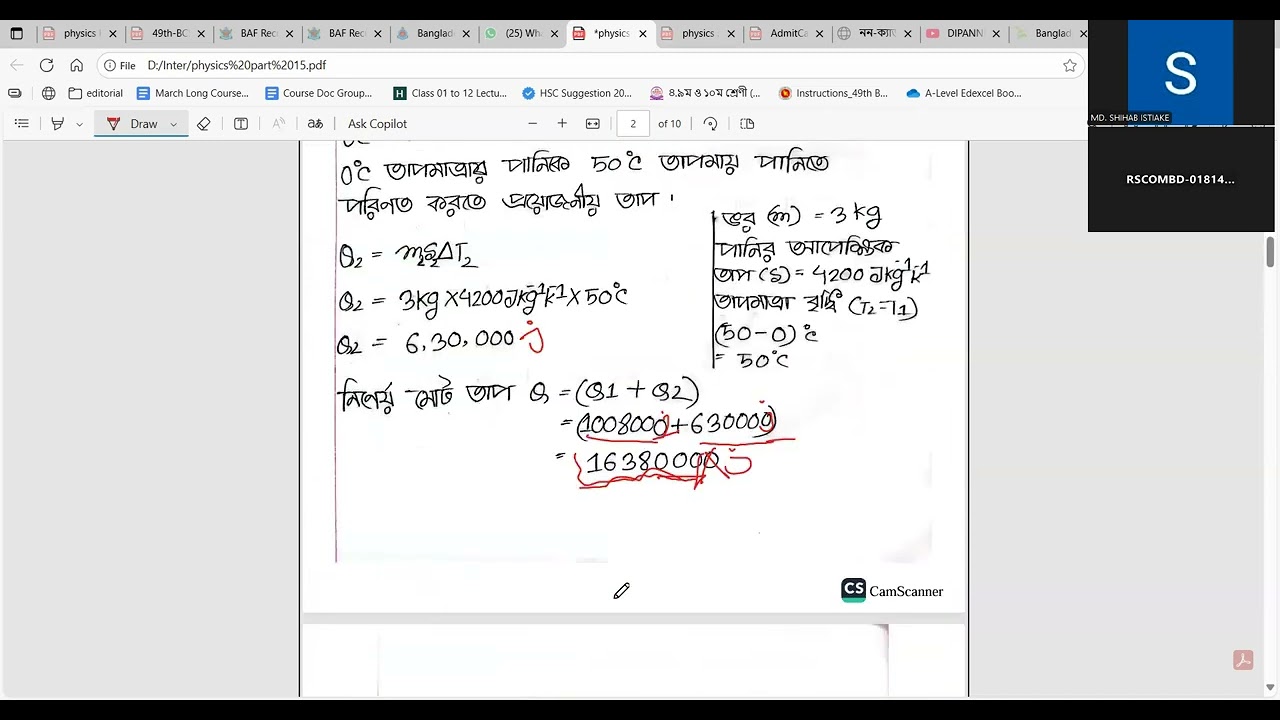 physics
49th-BC
BAF Rec
BAF Rec
Banglad
(25) Wha
*physics
physics
AdmitCa
নন-ক্যা
DIPANN
Banglad
File D:/Inter/physics%20part%2015.pdf
editorial
March Long Course...
Course Doc Group...
Class 01 to 12 Lectur...
HSC Suggestion 20...
৪.৯ম ও ১০ম শ্রেণী (...
Instructions_49th B...
A-Level Edexcel Boo...
Draw
Ask Copilot
2 of 10
S
MD. SHIHAB ISTIAKE
RSCOMBD-01814...
0°C তাপমাত্রার পানিকে 50°C তাপমায় পানিতে
পরিণত করতে প্রয়োজনীয় তাপ।
Q₂ = m₂s₂ΔT₂
Q₂ = 3kg×4200Jkg⁻¹k⁻¹×50°C
Q₂ = 6,30,000 j
ভর (m) = 3 kg
পানির আপেক্ষিক
তাপ (S) = 4200 Jkg⁻¹k⁻¹
তাপমাত্রা বৃদ্ধি (T₂-T₁)
(50-0)°C
= 50°C
নির্ণেয় মোট তাপ Q = (Q1 + Q2)
= (1008000j+630000j)
= 16380000 j
CS CamScanner